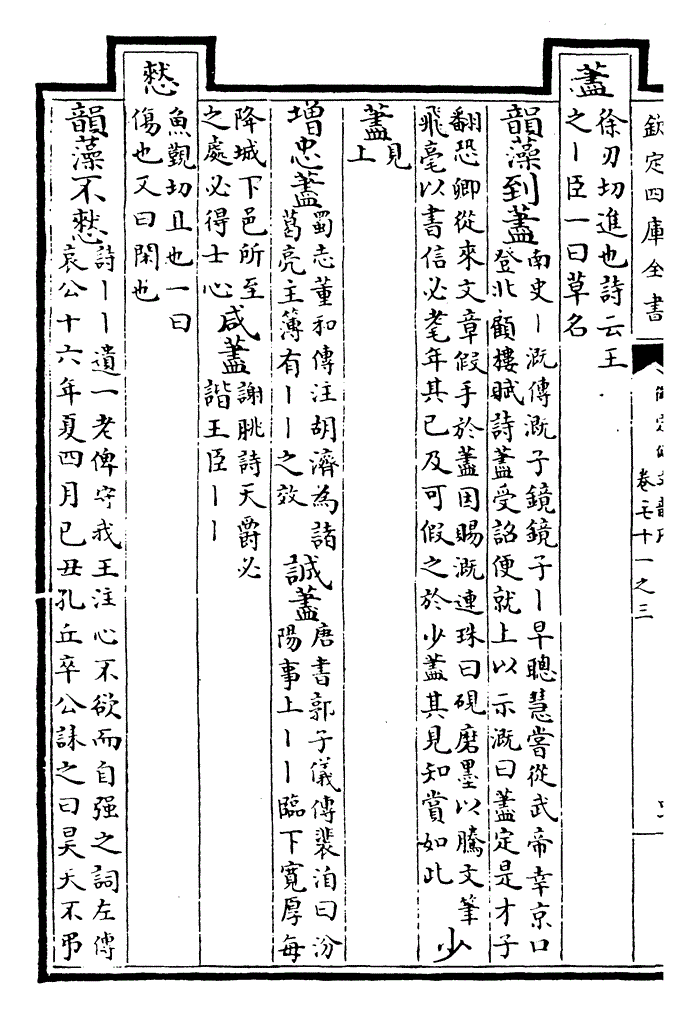 欽定四庫全書
卷七十一之三
藎
徐刃切進也詩云王
之丨臣一曰草名
韻藻到藎
南史丨溉傳溉子鏡鏡子丨早聰慧嘗從武帝幸京口
登北顧樓賦詩藎受詔便就上以示溉曰藎定是才子
翻恐卿從來文章假手於藎因賜溉連珠曰硯磨墨以騰文筆
飛毫以書信必耄年其已及可假之於少藎其見知賞如此
少
藎
見
上
增忠藎
蜀志董和傳注胡濟為諸
葛亮主簿有丨丨之效
誠藎
唐書郭子儀傳裴洎曰汾
陽事上丨丨臨下寛厚每
降城下邑所至
之處必得士心
咸藎
謝眺詩天爵必
諧王臣丨丨
憖
魚覲切且也一曰
傷也又曰閑也
韻藻不憖
詩丨丨遺一老俾守我王注心不欲而自强之詞左傳
哀公十六年夏四月己丑孔丘卒公誄之曰昊天不弔